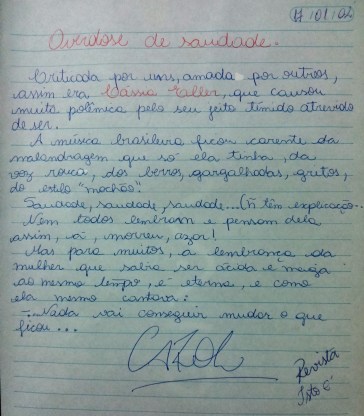 17/01/02
Overdose de saudade.
Criticada por uns, amada por outros,
assim era Cássia Eller, que causou
muita polêmica pelo seu jeito tímido atrevido
de ser.
A música brasileira ficou carente da
malandragem que só ela tinha, da
voz rouca, dos berros, gargalhadas, gritos,
do estilo "machão".
Saudade, saudade, saudade... (ñ têm explicação...
Nem todos lembram e pensam dela
assim, ai, morreu, azar!
Mas para muitos, a lembrança da
mulher que sabia ser ácida e meiga
ao mesmo tempo, é eterna, e como
ela mesmo cantava:
- Nada vai conseguir mudar o que
ficou...
Revista
Isto É